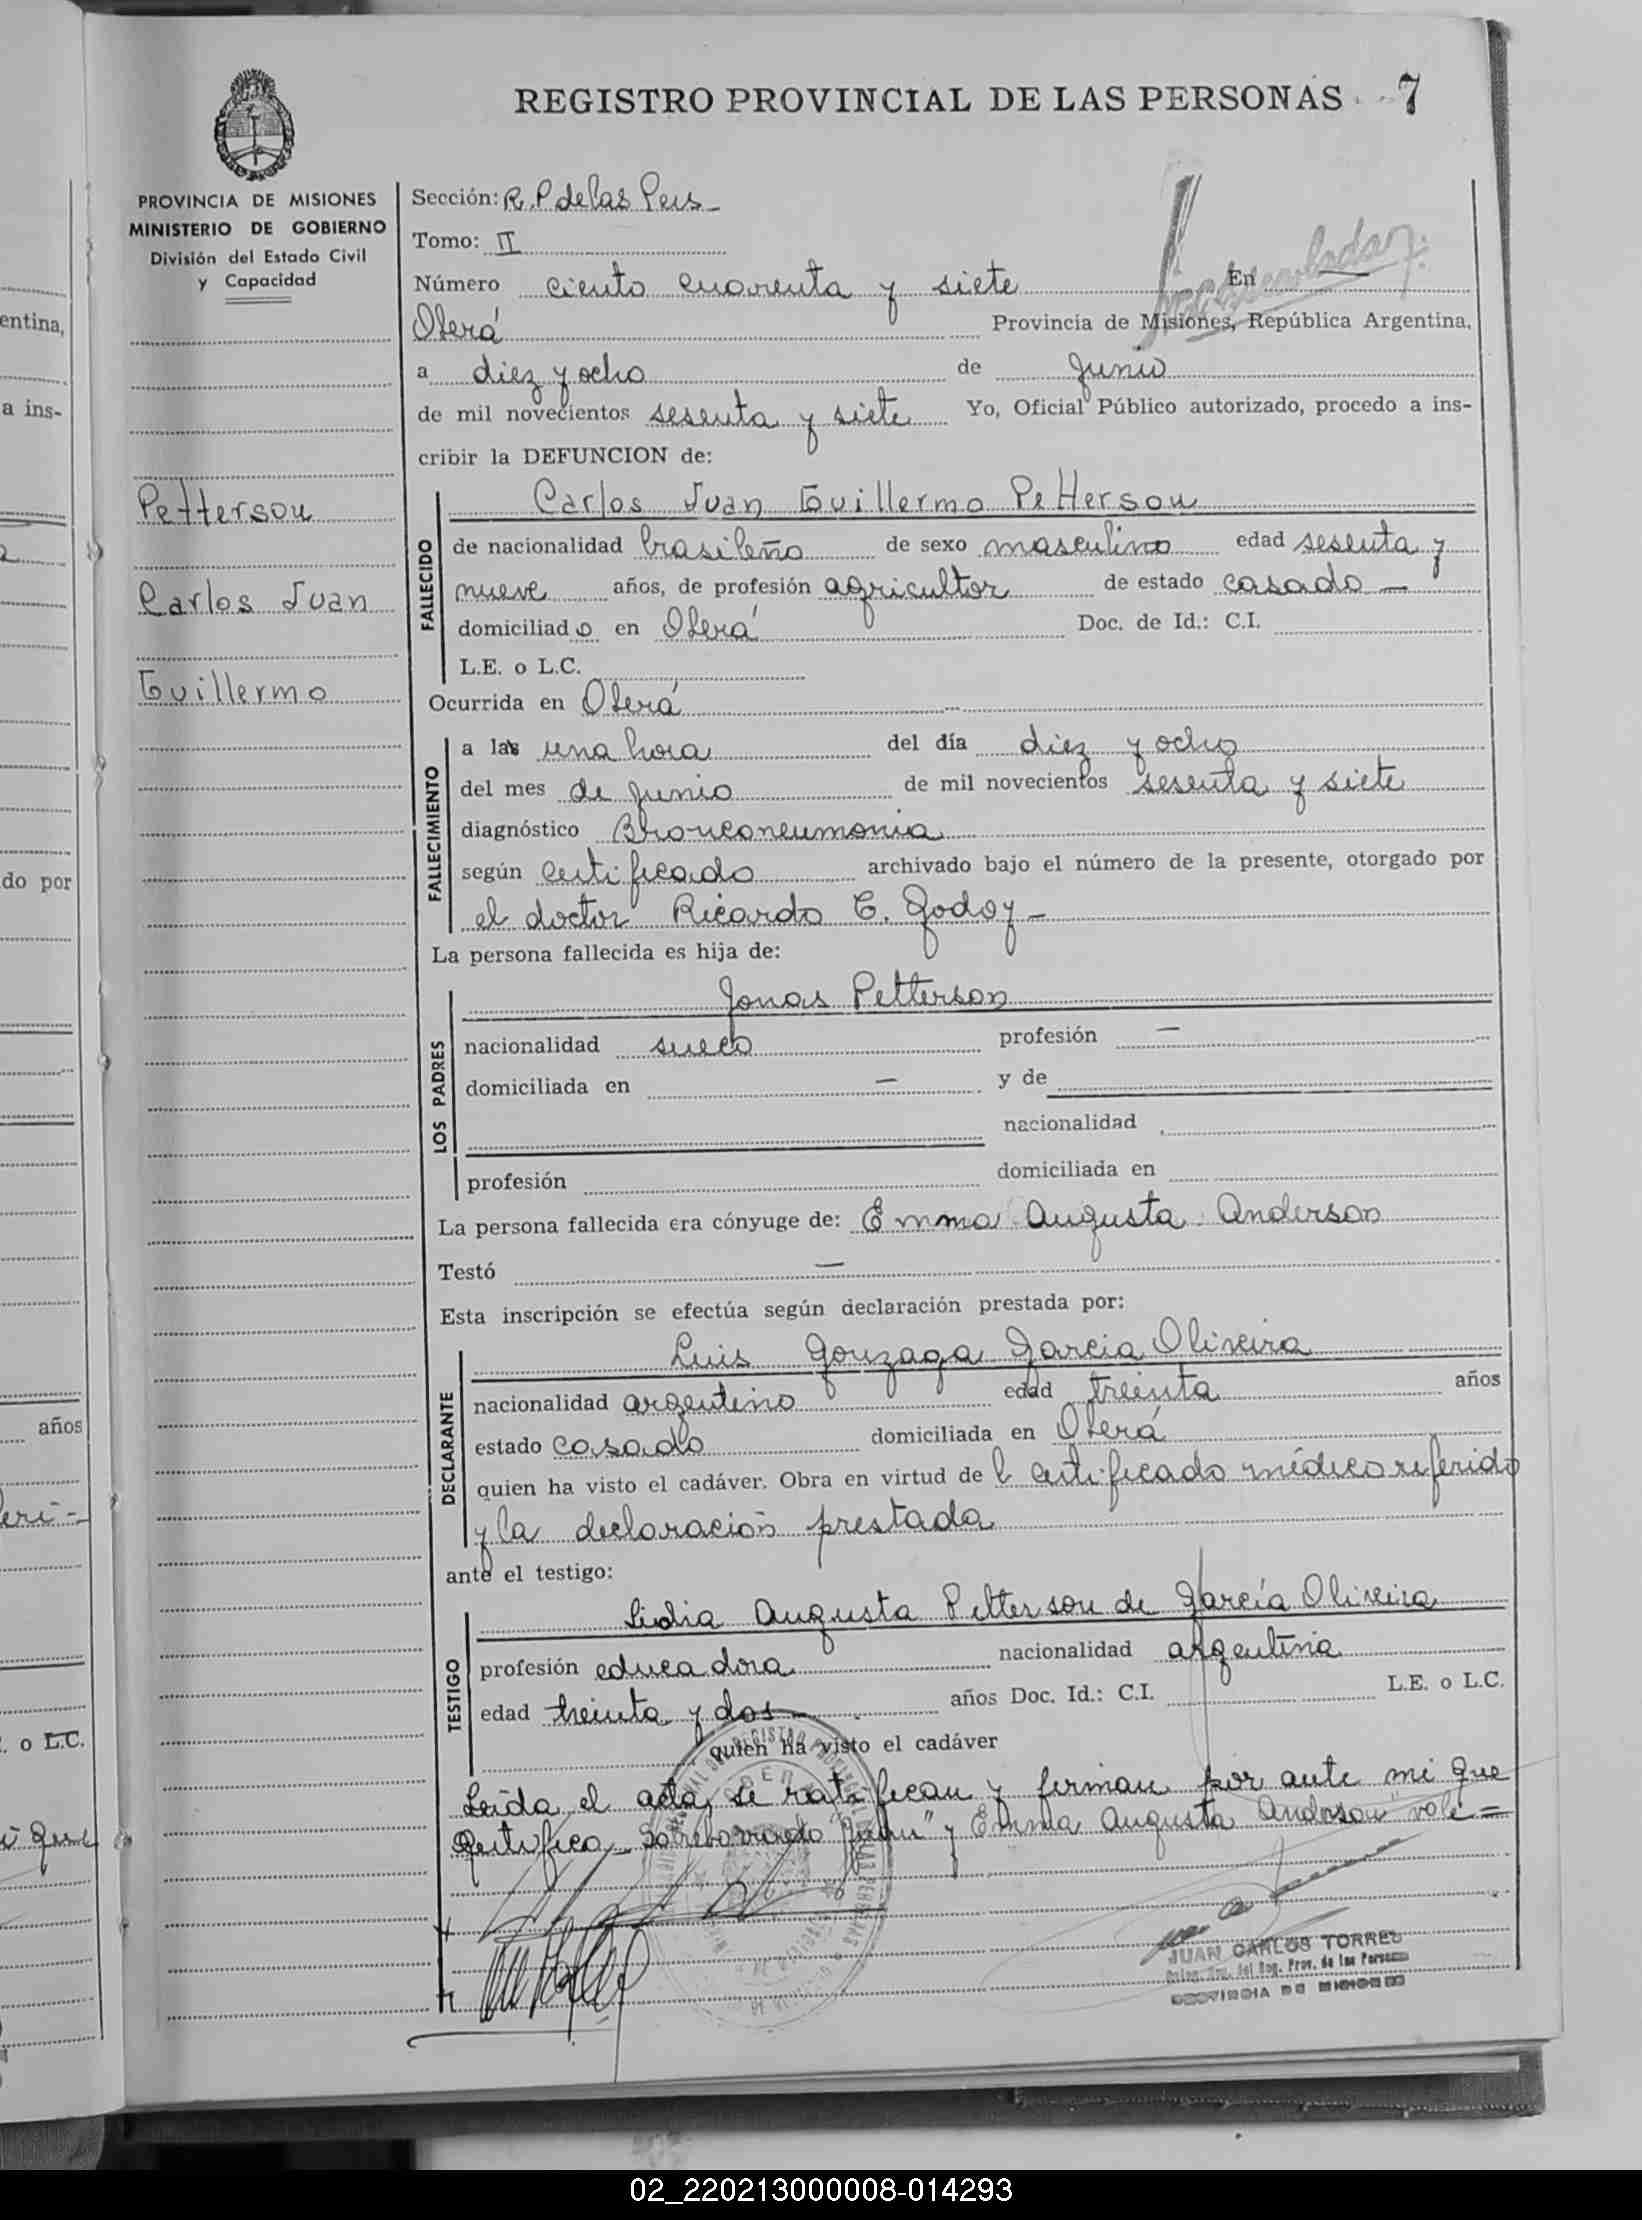 REGISTRO PROVINCIAL DE LAS PERSONAS 7
PROVINCIA DE MISIONES
MINISTERIO DE GOBIERNO
División del Estado Civil
y Capacidad
Petterson
Carlos Juan
Guillermo
Sección: R.P de las Pers
Tomo: II
Número ciento cuarenta y siete En
Oberá Provincia de Misiones, República Argentina,
a diez y ocho de Junio
de mil novecientos sesenta y siete Yo, Oficial Público autorizado, procedo a ins-
cribir la DEFUNCION de:
FALLECIDO
Carlos Juan Guillermo Petterson
de nacionalidad brasileño de sexo masculino edad sesenta y
nueve años, de profesión agricultor de estado casado —
domiciliado en Oberá Doc. de Id.: C.I.
L.E. o L.C.
Ocurrida en Oberá
FALLECIMIENTO
a las una hora del día diez y ocho
del mes de junio de mil novecientos sesenta y siete
diagnóstico Bronconeumonia
según certificado archivado bajo el número de la presente, otorgado por
el doctor Ricardo C. Godoy —
La persona fallecida es hija de:
LOS PADRES
Jonas Petterson
nacionalidad sueco profesión —
domiciliada en — y de
nacionalidad
profesión domiciliada en
La persona fallecida era cónyuge de: Emma Augusta Anderson
Testó —
Esta inscripción se efectúa según declaración prestada por:
DECLARANTE
Luis Gonzaga Garcia Oliveira
nacionalidad argentino edad treinta años
estado casado domiciliada en Oberá
quien ha visto el cadáver. Obra en virtud del certificado médico referido
y la declaración prestada
ante el testigo:
TESTIGO
Lidia Augusta Petterson de García Oliveira
profesión educadora nacionalidad argentina
edad treinta y dos — años Doc. Id.: C.I. L.E. o L.C.
quien ha visto el cadáver
Leida el acta, se ratifican y firman por ante mi que
Certifico — Sobreborrado "Juan" y Emma Augusta Anderson" vale =
JUAN CARLOS TORRES
Reg. Prov. de las Personas
PROVINCIA DE MISIONES
entina,
a ins-
do por
años
eri-
. o L.C.
i que
02_220213000008-014293